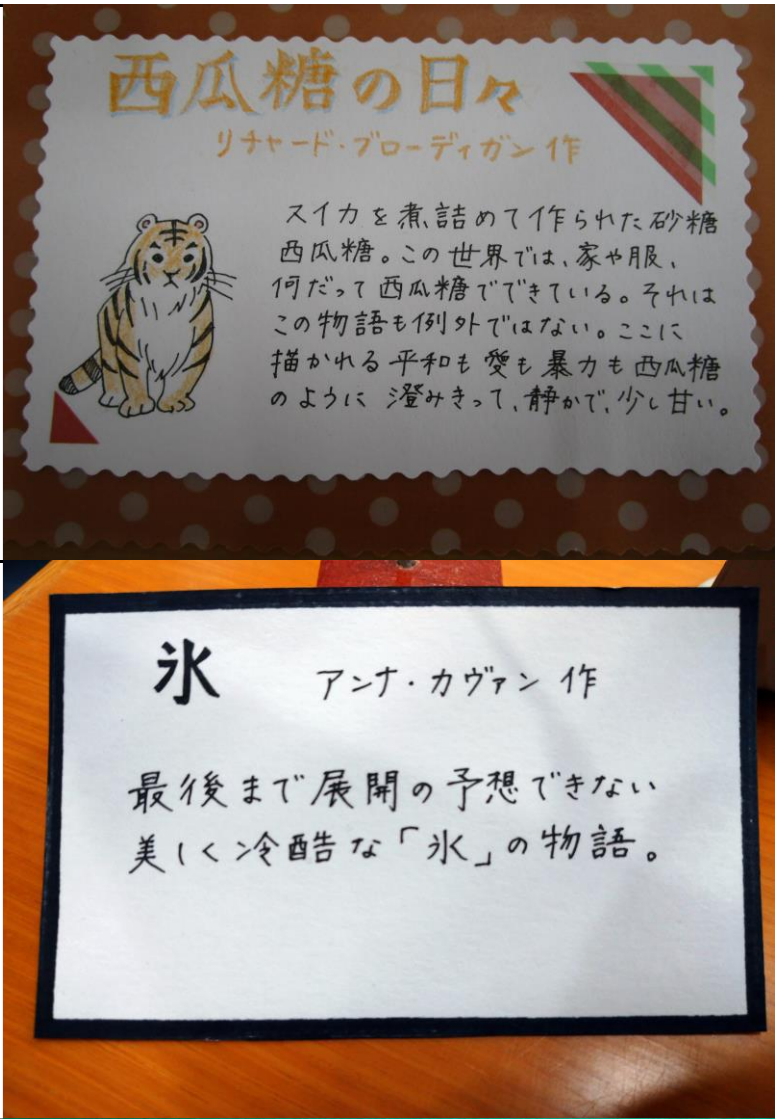 西瓜糖の日々
リチャード・ブローディガン作
スイカを煮詰めて作られた砂糖
西瓜糖。この世界では、家や服、
何だって西瓜糖でできている。それは
この物語も例外ではない。ここに
描かれる平和も愛も暴力も西瓜糖
のように澄みきって、静かで、少し甘い。
氷 アンナ・カヴァン作
最後まで展開の予想できない
美しく冷酷な「氷」の物語。